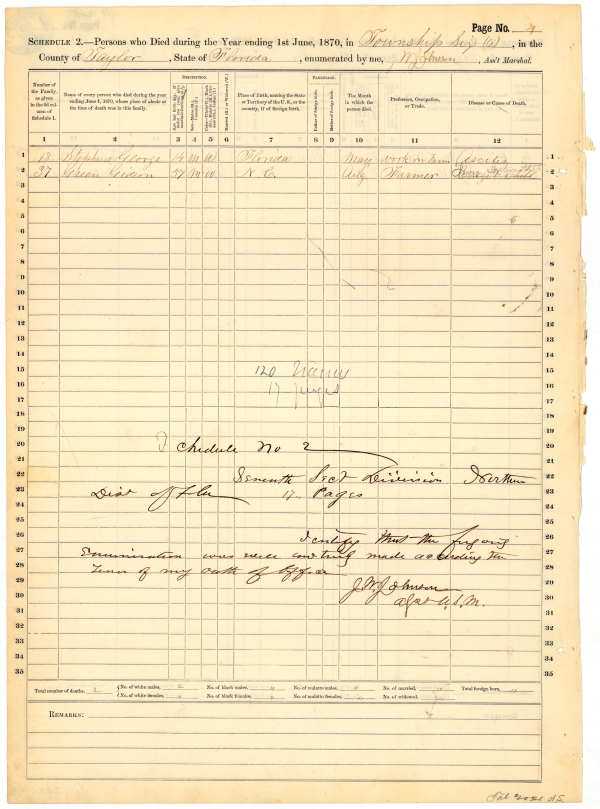 Page No. 4
SCHEDULE 2.—Persons who Died during the Year ending 1st June, 1870, in Township Six (6), in the
County of Taylor, State of Florida, enumerated by me, W J Johnson, Ass't Marshal.
Number of the Family, as given in the 2d column of Schedule 1.
Name of every person who died during the year ending June 1, 1870, whose place of abode at the time of death was in this family.
DESCRIPTION.
Married (M.) or Widowed (W.)
Place of Birth, naming the State or Territory of the U. S., or the country, if of foreign birth.
PARENTAGE.
Father of foreign birth.
Mother of foreign birth.
The Month in which the person died.
Profession, Occupation, or Trade.
Disease or Cause of Death.
1 2 3 4 5 6 7 8 9 10 11 12
1 18 George 14 M W Florida May work on Farm Ascitis 1
2 37 Green Gideon 57 M W N C. Aug Farmer 2
3 3
4 4
5 5
6 6
7 7
8 8
9 9
10 10
11 11
12 12
13 13
14 14
15 15
120 Names
16 16
17 pages
17 17
18 18
19 19
20 20
Schedule No 2
21 21
22 Seventh Sect Division Northern 22
23 Dist of Fla 17 Pages 23
24 24
25 25
26 I certify that the forgoing 26
27 Enumeration was made according the 27
28 Tenor of my oath of office 28
29 J. W. Johnson 29
30 Asst U. S. M. 30
31 31
32 32
33 33
34 34
35 35
Total number of deaths, 2 No. of white males, 2 No. of black males, No. of mulatto males, No. of married, Total foreign born,
No. of white females, No. of black females, No. of mulatto females, No. of widowed,
REMARKS: